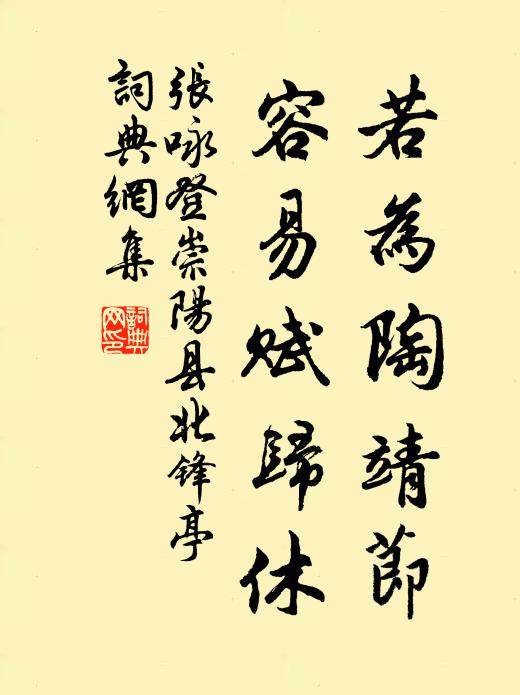 若為陶靖節
容易賦歸休
張咏登崇陽县北鋒亭
詞典網集
詞典
网印